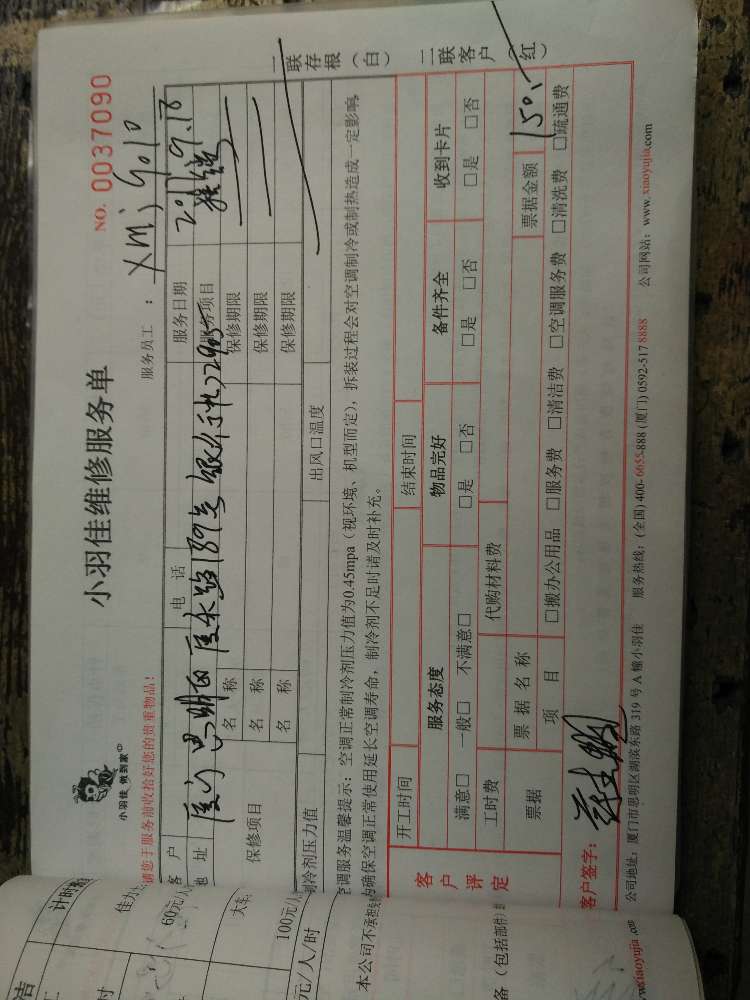 小羽佳维修服务单
NO. 0037090
小羽佳 做到家
请您于服务前收拾好您的贵重物品!
服务员工: xm; 9010
客户
电话
服务日期
地址
服务项目
保修项目
名称
保修期限
名称
保修期限
名称
保修期限
制冷剂压力值
出风口温度
空调服务温馨提示:空调正常制冷剂压力值为0.45mpa(视环境、机型而定),拆装过程会对空调制冷或制热造成一定影响,
为确保空调正常使用延长空调寿命,制冷剂不足时请及时补充。
本公司不承担
一联存根(白) 二联客户(红)
客户评定
开工时间
结束时间
服务态度
物品完好
备件齐全
收到卡片
满意□ 一般□ 不满意□
□是 □否
□是 □否
□是 □否
工时费
代购材料费
票据
票据名称
票据金额
150.
项目
□搬办公用品 □服务费 □清洁费 □空调服务费 □清洗费 □疏通费
客户签字:
公司地址:厦门市思明区湖滨东路 319 号 A 幢小羽佳 服务热线:(全国) 400-6655-888 (厦门) 0592-5178888 公司网站:www.xiaoyujia.com
计时
60元/
100元/
元/人/时
备(包括部件)
xiaoyujia.com